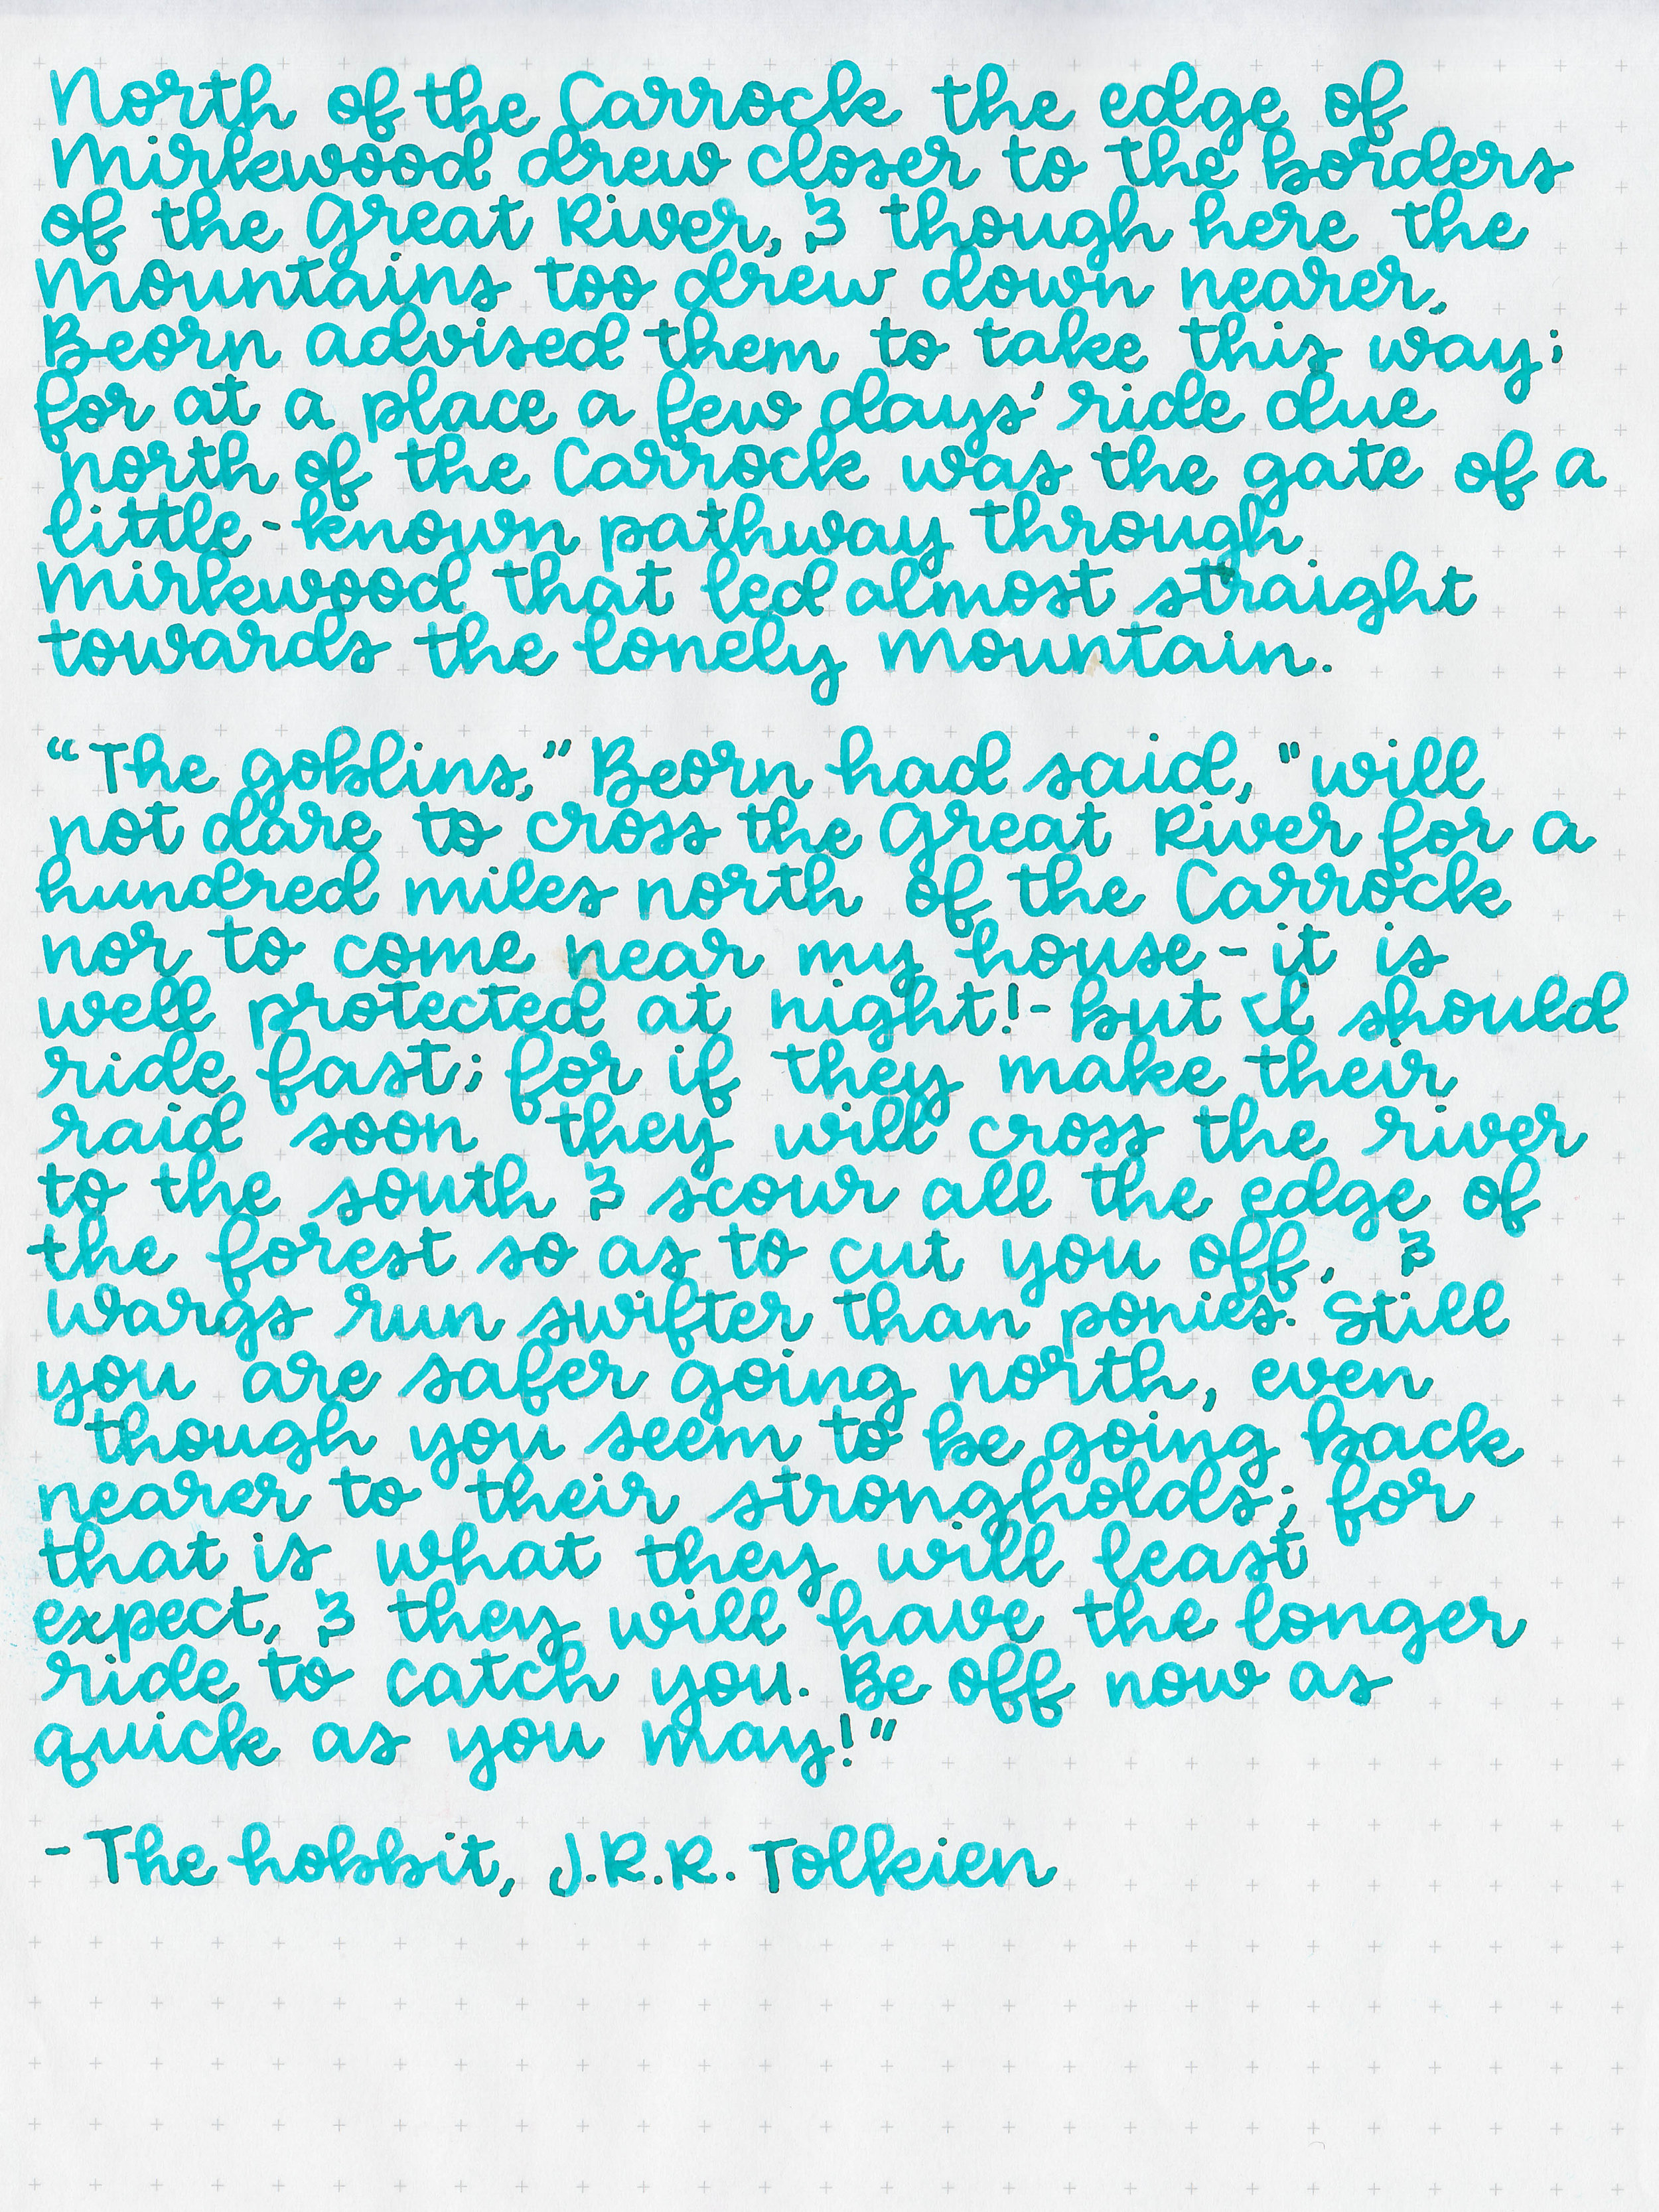 North of the Carrock the edge of
Mirkwood drew closer to the borders
of the Great River, & though here the
Mountains too drew down nearer,
Beorn advised them to take this way;
for at a place a few days' ride due
north of the Carrock was the gate of a
little-known pathway through
Mirkwood that led almost straight
towards the lonely Mountain.
“The goblins,” Beorn had said, "will
not dare to cross the Great River for a
hundred miles north of the Carrock
nor to come near my house - it is
well protected at night!- but I should
ride fast; for if they make their
raid soon they will cross the river
to the south & scour all the edge of
the forest so as to cut you off, &
Wargs run swifter than ponies. Still
you are safer going north, even
though you seem to be going back
nearer to their strongholds; for
that is what they will least
expect, & they will have the longer
ride to catch you. Be off now as
quick as you may!"
- The hobbit, J.R.R. Tolkien